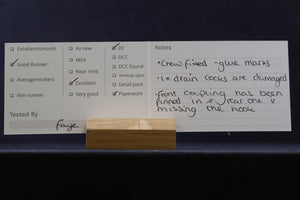 Excellent/smooth
Good Runner
Average/stutters
Non-runner
Tested By
Faye
As new
Mint
Near mint
Excellent
Very good
DC
DCC
DCC Sound
Working Lights
Detail pack
Paperwork
Notes
•Crew fixed - glue marks
•1x drain cocks are damaged
•front coupling has been
missing the hook